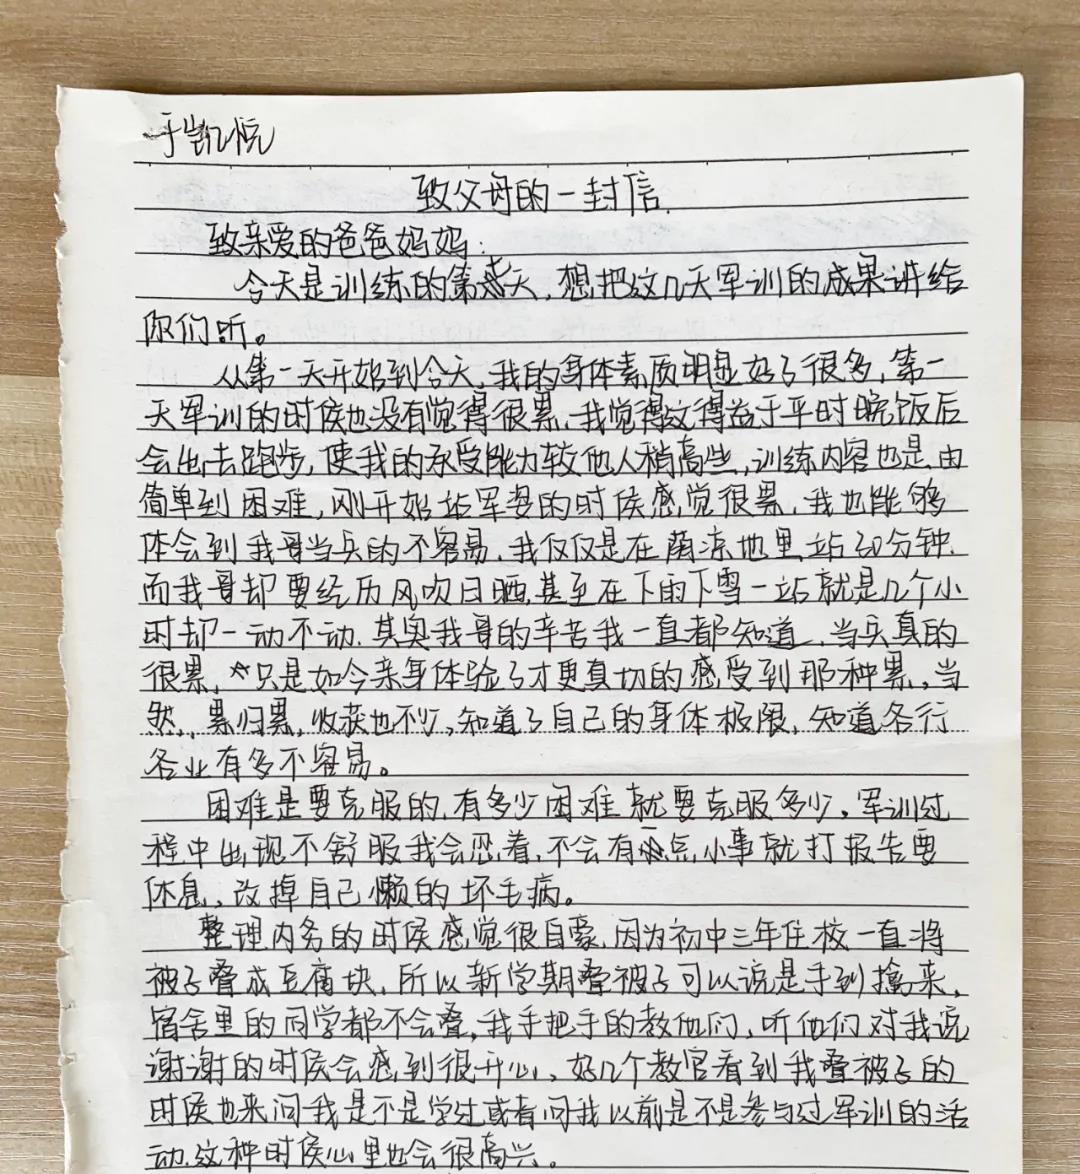 于凯悦
致父母的一封信.
致亲爱的爸爸妈妈:
今天是训练的第天,想把这几天军训的成果讲给
你们听。
从第一天开始到今天,我的身体素质明显好了很多,第一
天军训的时候也没有觉得很累,我觉得这得益于平时晚饭后
会出去跑步,使我的承受能力较他人稍高些,训练内容也是由
简单到困难,刚开始站军姿的时候感觉很累,我也能够
体会到我哥当兵的不容易,我仅仅是在荫凉地里站30分钟,
而我哥却要经历风吹日晒,甚至在下雨下雪一站就是几个小
时却一动不动.其实我哥的辛苦我一直都知道,当兵真的
很累,只是如今亲身体验了才更真切的感受到那种累,当
然,累归累,收获也不少,知道了自己的身体极限,知道各行
各业有多不容易。
困难是要克服的,有多少困难就要克服多少。军训过
程中出现不舒服我会忍着,不会有一点小事就打报告要
休息,改掉自己懒的坏毛病。
整理内务的时候感觉很自豪,因为初中三年住校一直将
被子叠成豆腐块,所以新学期叠被子可以说是手到擒来,
宿舍里的同学都不会叠,我手把手的教他们,听他们对我说
谢谢的时候会感到很开心,好几个教官看到我叠被子的
时候也来问我是不是学过或者问我以前是不是参与过军训的活
动,这种时候心里也会很高兴。